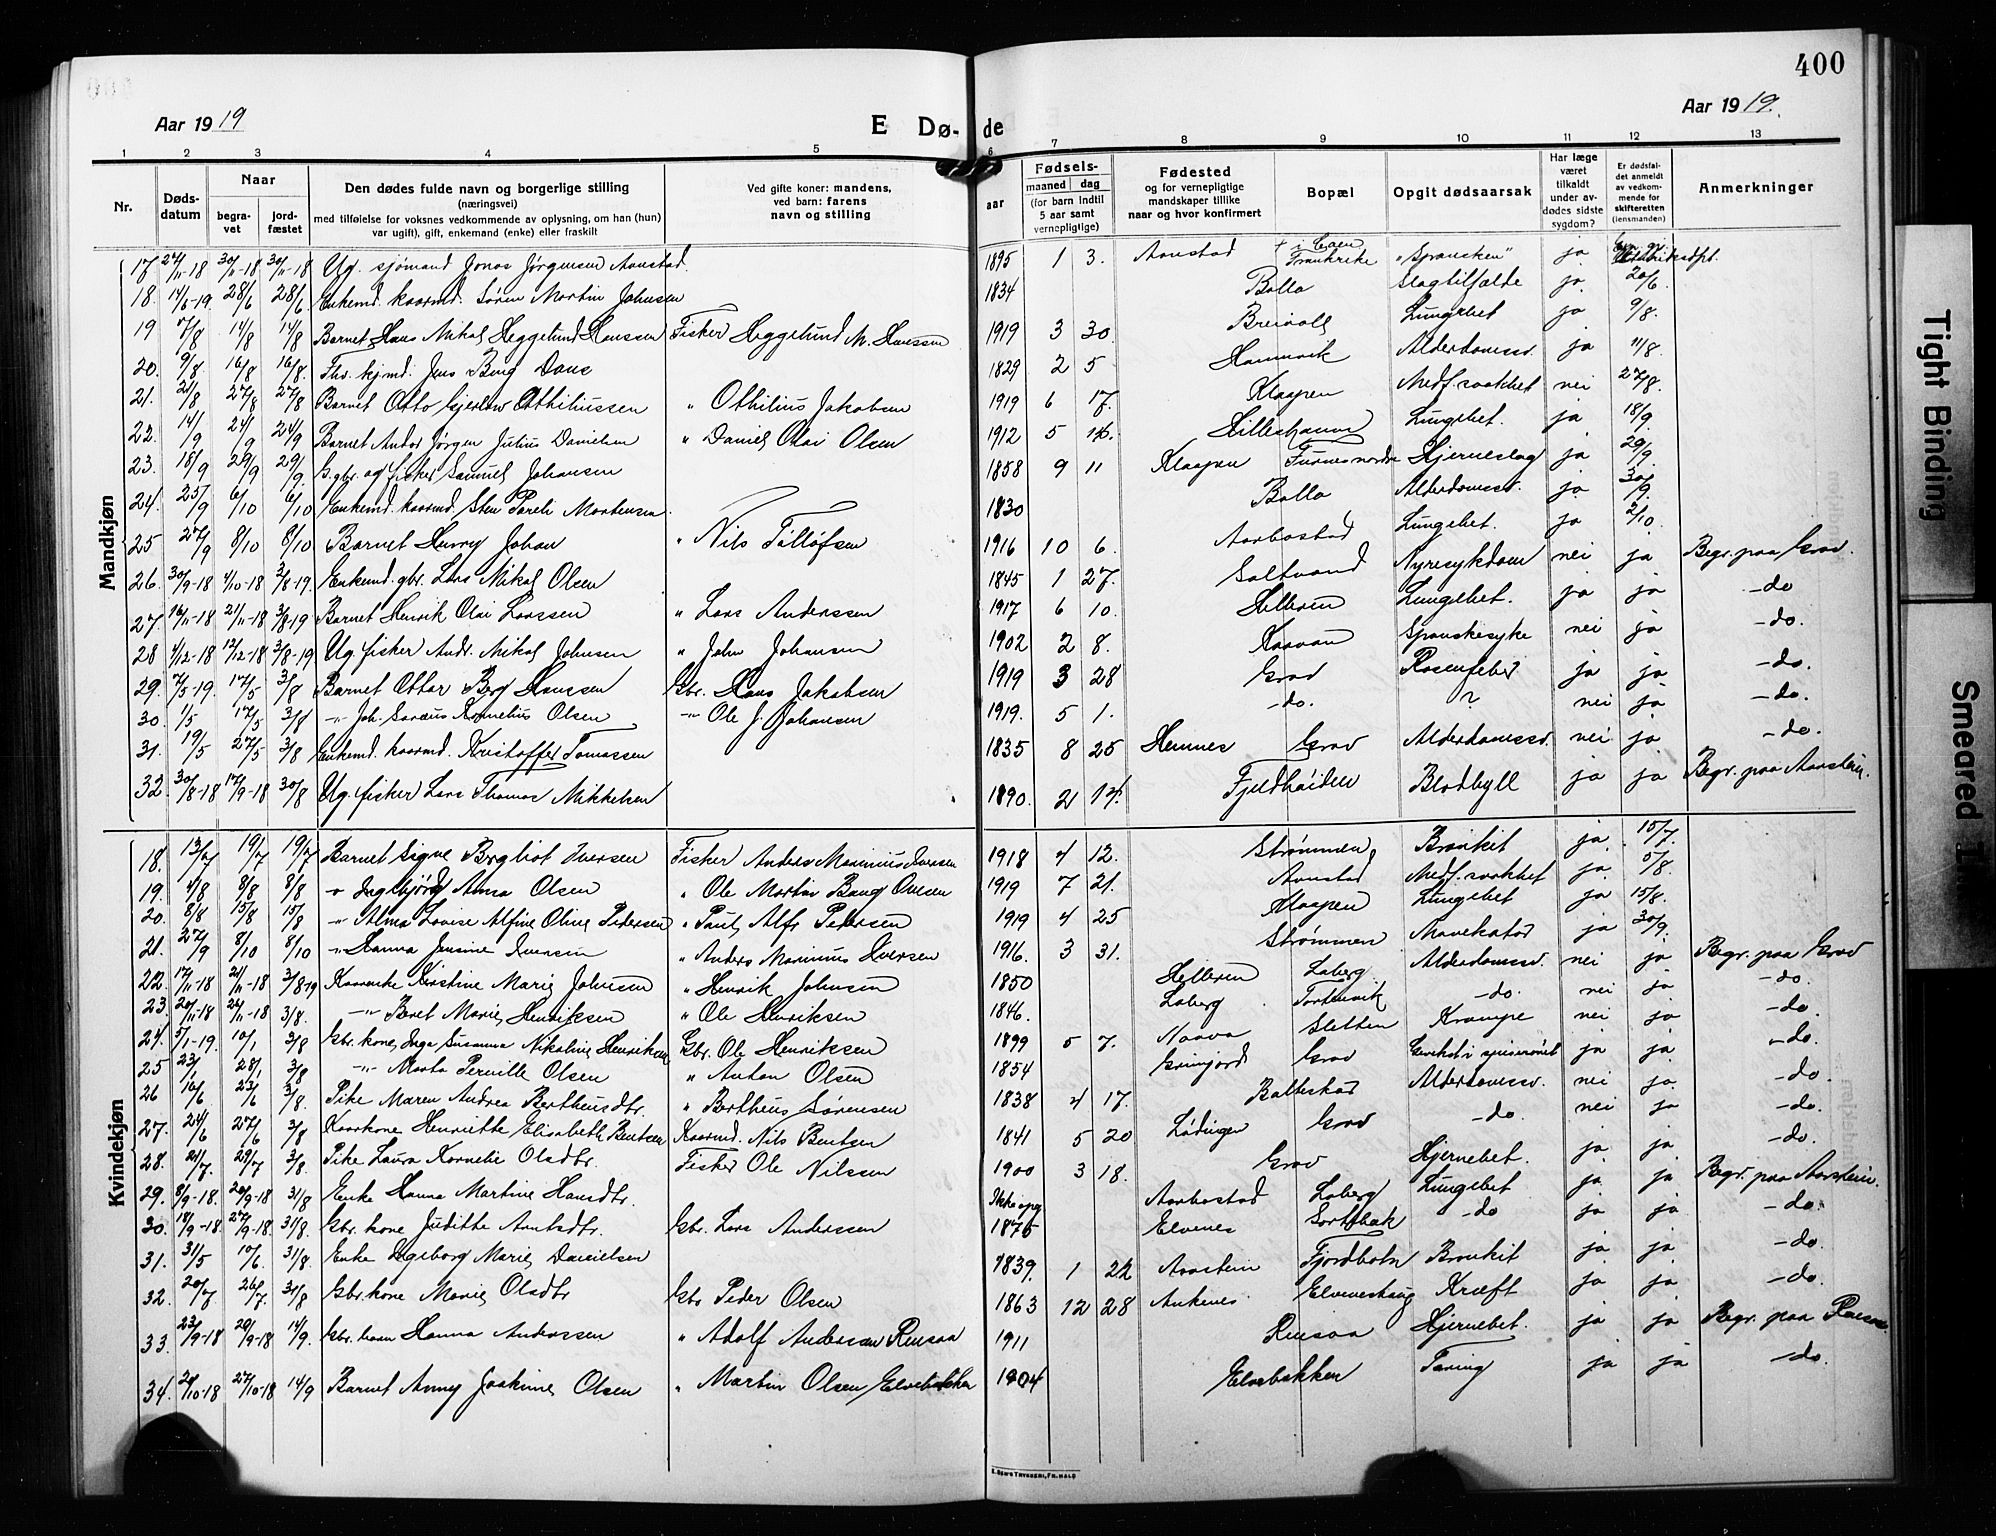 400
Aar 1919
E Dø-de
Aar 1919.
1 2 3 4 5 6 7 8 9 10 11 12 13
Nr.
Døds-datum
Naar
begra-vet
jord-fæstet
Den dødes fulde navn og borgerlige stilling
(næringsvei)
med tilføielse for voksnes vedkommende av oplysning, om han (hun)
var ugift), gift, enkemand (enke) eller fraskilt
Ved gifte koner: mandens,
ved barn: farens
navn og stilling
Fødsels-
aar
maaned
dag
(for barn indtil
5 aar samt
vernepligtige)
Fødested
og for vernepligtige
mandskaper tillike
naar og hvor konfirmert
Bopæl
Opgit dødsaarsak
Har læge
været
tilkaldt
under av-
dødes sidste
sygdom?
Er dødsfal-
det anmeldt
av vedkom-
mende for
skifteretten
(lensmanden)
Anmerkninger
Mandkjøn
17 27/11-18 30/11-18 30/11-18 Ug. sjømand Jonas Jørgensen Aanstad. 1895 1 3. Aanstad + i Caen Frankrike "Spansken" ja
18. 14/6-19 28/6 28/6 Enkemd. kaarmd. Søren Martin Johnsen 1834 Bolla Slagtilfælde ja 20/6
19 7/8 14/8 14/8 Barnet Hans Mikal Heggelund Hanssen Fisker Heggelund M. Hanssen 1919 3 30 Breivoll Lungebet ja 9/8.
20. 9/8 16/8 16/8. Fhv. kjmd. Jens Bing Dons 1829 2 5 Hamnvik Alderdomssv. ja 11/8.
21. 21/8 27/8 27/8 Barnet Otto Gjerlow Otthiliussen " Othilius Jakobsen 1919 6 17. Klaapen Medf. svakhet nei 27/8.
22. 14/9 24/9 24/9 Barnet Andor Jørgen Julius Danielsen " Daniel Olai Olsen 1912 5 14. Hilleshamn Lungebet. ja 18/9.
23. 18/9 29/9 29/9. Gbr. og fisker Samuel Johansen 1858 9 11 Klaapen Furnes nordre Hjerneslag ja 29/9.
24. 25/9 6/10 6/10 Enkemd. kaarmd. Sten Pareli Mortensen. 1830 Bolla Alderdomssv. ja 30/9.
25 27/9 8/10 8/10 Barnet Henry Johan " Nils Tollefsen 1916 10 6. Aarbostad Lungebet. ja 2/10.
26. 30/9-18 4/10-18 3/8-19. Enkemd. gbr. Lars Mikal Olsen 1845 1 27. Saltvand Nyresykdom nei ja Begr. paa Grav.
27. 16/11-18 21/11-18 3/8-19 Barnet Henrik Olai Larssen " Lars Anderssen 1917 6 10. Helleren Lungebet. ja ja - do
28 4/12-18 12/12-18 3/8-19 Ug. fisker Andr. Mikal Johnsen " John Johansen 1902 2 8. Kaavan Spanskesyke nei ja - do.
29. 7/5-19. 17/5 3/8 Barnet Ottar Berg Hanssen Gbr. Hans Jakobsen 1919 3 28 Grav Rosenfeber ja ja - do.
30. 1/5 17/5 3/8 -"- Joh. Kornelius Olsen -"- Ole J. Johansen 1919. 5 1. - do. ? nei ja - do.
31. 19/5 27/5 3/8 Enkemd. kaarmd. Kristoffer Tomassen 1835 8 25 Hemnes Grav Alderdomssv. nei ja - do.
32 30/8-18 17/9-18 30/8 Ug. fisker Lars Thomas Mikkelsen 1890. 2 14. Fjeldhøiden Blodhyll ja ja Begr. paa Aarstein.
Kvindekjøn
18. 13/7 19/7 19/7 Barnet Signe Bergliot Iversen Fisker Anders Marinius Iversen 1918 4 12. Strømmen Bronkit ja 15/7.
19. 4/8 8/8 8/8 " Ingebjørg Anna Olsen " Ole Martin Bang Olsen 1919 7 21. Aanstad Medf. svakhet ja 5/8.
20. 8/8 15/8 15/8 -"- Alma Lovise Alfine Oline Pedersen " Paul Alfr. Pedersen 1919 4 25 Klaapen Lungebet ja 15/8.
21. 27/9 8/10 8/10 -"- Hanna Jensine Iversen " Anders Marinius Iversen 1916. 3 31. Strømmen Mavekatar ja 30/9.
22. 17/11-18 21/11-18 3/8-19 Kaarenke Kirstine Marie Johnsen " Henrik Johnsen 1850 Helleren Laberg Alderdomssv. nei ja Begr. paa Grav
23. 20/11-18 24/11-18 3/8. -"- Beret Marie Henriksen " Ole Henriksen 1846. Laberg Tortenvik - do. nei ja - do.
24. 5/1-19. 10/1 3/8 Gbr. kone Inga Susanna Nikoline Henriksen Gbr. Ole Henriksen 1899 5 7. Naava Sletten Krampe nei ja - do.
25 23/1 28/1 3/8 -"- Marta Pernille Olsen " Anton Olsen 1854 Grinjord Grav ja ja - do.
26 16/6 23/6 3/8. Pike Maren Andrea Bertheusdtr. " Bertheus Sørensen 1838 4 17. Balteskar Alderdomssv. nei ja - do.
27. 24/6 27/6 3/8 Kaarkone Henriette Elisabeth Bentsen Kaarmd. Nils Bentsen 1841 5 20 Lødingen Grav - do. nei ja - do.
28. 21/7. 29/7 3/8. Pike Laura Kornelie Olsdtr. Fisker Ole Nilssen 1900 3 18. Grav Hjernebet. ja ja - do.
29. 8/9-18. 20/9-18 31/8 Enke Hanna Martine Hansdtr. Ikke opg Aarbostad Laberg Lungebet ja ja Begr. paa Aarstein.
30. 18/9-18. 27/9-18. 31/8. Gbr. kone Juditte Arntsdtr. Gbr. Lars Anderssen 1875 Elvenes Sørtbak - do ja ja - do.
31. 31/5 10/6. 31/8. Enke Ingeborg Marie Danielsen 1839. 1 22 Aarstein Fjordbotn Bronkit ja ja - do.
32. 20/7 26/7. 31/8 Gbr. kone Marie Olsdtr Gbr Peder Olsen 1863 12 28 Ankenes Elveneshaug Kræft ja ja - do.
33. 23/9-18 29/9-18 14/9. Gbr. barn Hanna Anderssen " Adolf Andersen Rensaa 1911 Rensaa Hjernebet. ja ja Begr. paa
34. 21/10-18 27/10-18 14/9 Barnet Anny Joakine Olsen " Martin Olsen Elvebakken 1904 Elvebakken Tæring ja ja - do.
E. SEM'S TRYKKERI, FR.HALD
Tight Binding
Smeared